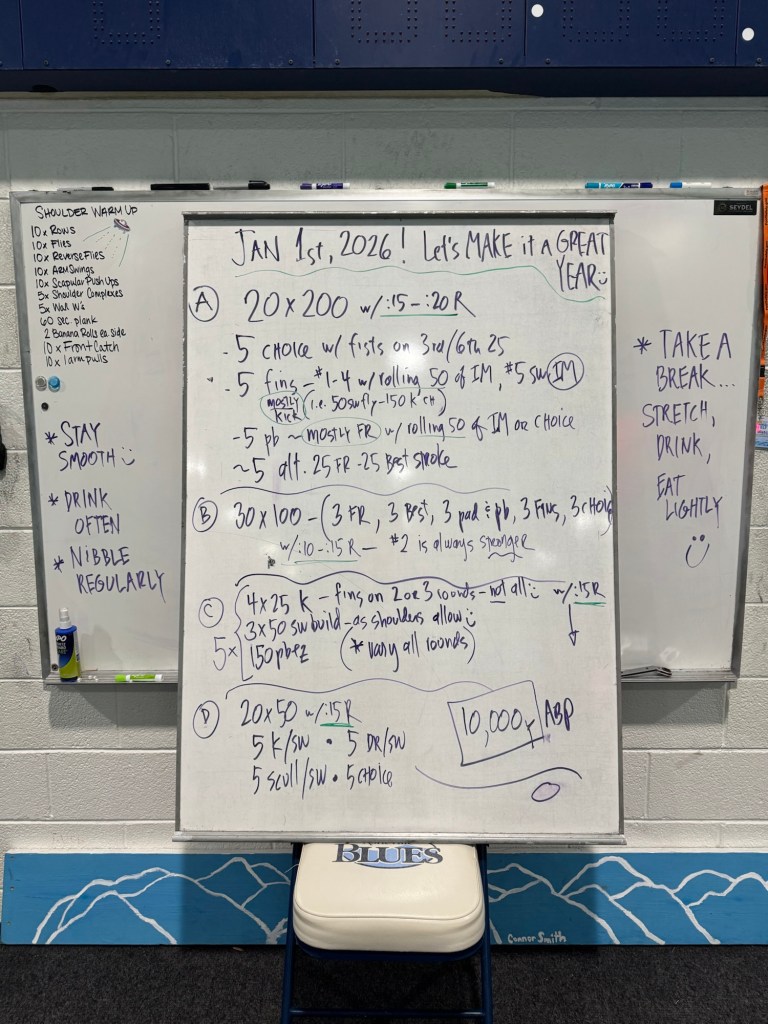 SHOULDER WARM UP
10 x ROWS
10 x Flies
10 x Reverse Flies
10 x ARM SWINGS
10 x Scapular Push Ups
5 x Shoulder Complexes
5 x Wall W's
60 sec. plank
2 Banana Rolls ea. side
10 x Front Catch
10 x 1 arm pulls
* STAY
SMOOTH
* DRINK
OFTEN
* NIBBLE
REGULARLY
JAN 1st, 2026! Let's MAKE it A GREAT
YEAR
A 20 x 200 w/ :15 - :20 R
- 5 CHOICE w/ fists on 3rd/6th 25
- 5 fins - #1-4 w/ rolling 50 of IM, #5 sw IM
MOSTLY KICK (i.e. 50 sw fly - 150 K CH)
- 5 pb ~ MOSTLY FR w/ rolling 50 of IM or CHOICE
~ 5 alt. 25 FR - 25 Best stroke
B 30 x 100 - (3 FR, 3 Best, 3 pad & pb, 3 Fins, 3 CHOICE
w/ :10 - :15 R - #2 is always stronger
C 5x 4 x 25 K - fins on 2 or 3 rounds - not all w/ :15 R
3 x 50 sw build - as shoulders allow
150 pb ez (* vary all rounds)
D 20 x 50 w/ :15 R
5 K/SW • 5 DR/SW
5 scull/sw • 5 CHOICE
10,000y ABP
* TAKE A
BREAK...
STRETCH,
DRINK,
EAT
LIGHTLY
BEYDEL
EXPO
BLUES
Connor Smith